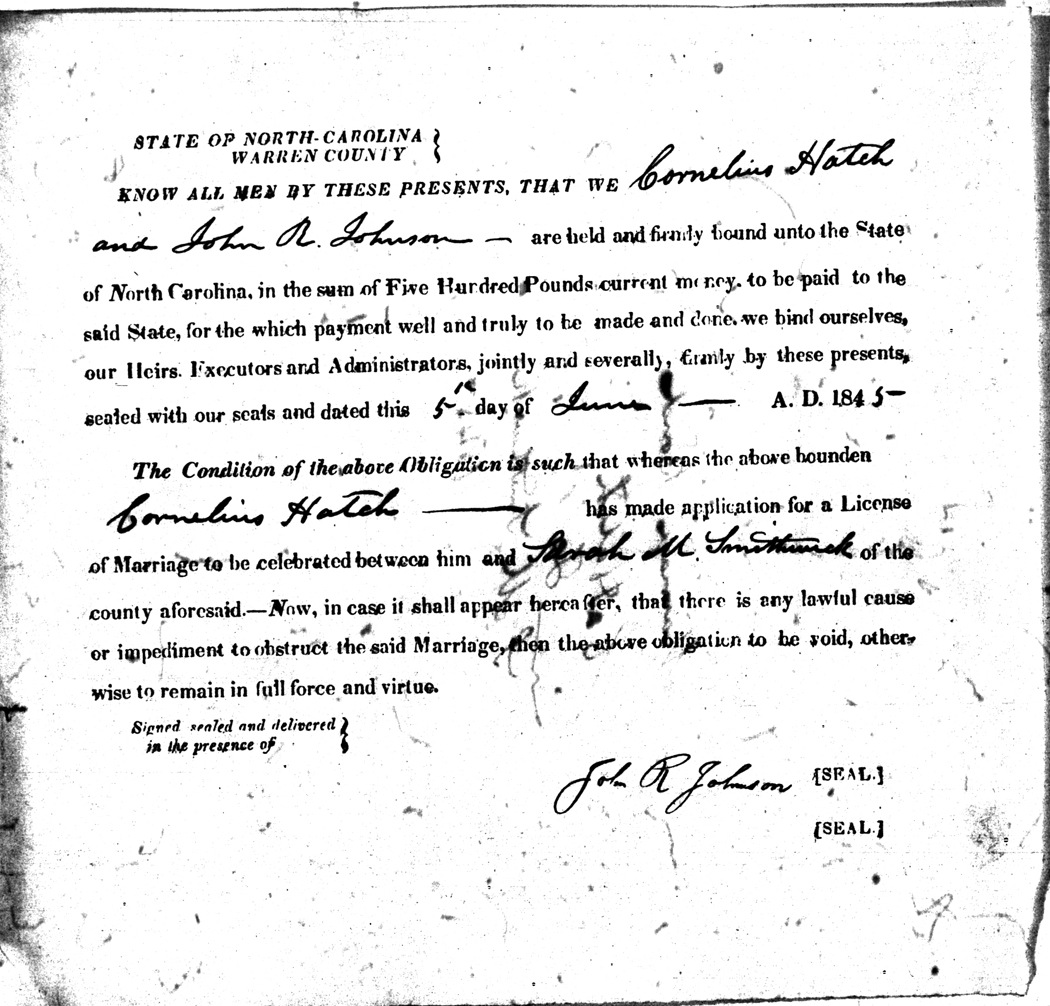 STATE OF NORTH-CAROLINA }
WARREN COUNTY }
KNOW ALL MEN BY THESE PRESENTS, THAT WE Cornelius Hatch
and John R. Johnson — are held and firmly bound unto the State
of North Carolina, in the sum of Five Hundred Pounds current money, to be paid to the
said State, for the which payment well and truly to be made and done, we bind ourselves,
our Heirs. Executors and Administrators, jointly and severally, firmly by these presents,
sealed with our seals and dated this 5th day of June — A. D. 1845—
The Condition of the above Obligation is such that whereas the above bounden
Cornelius Hatch — has made application for a License
of Marriage to be celebrated between him and Sarah M. Smithwick of the
county aforesaid.—Now, in case it shall appear hereafter, that there is any lawful cause
or impediment to obstruct the said Marriage, then the above obligation to be void, other-
wise to remain in full force and virtue.
Signed sealed and delivered }
in the presence of }
John R Johnson [SEAL.]
[SEAL.]